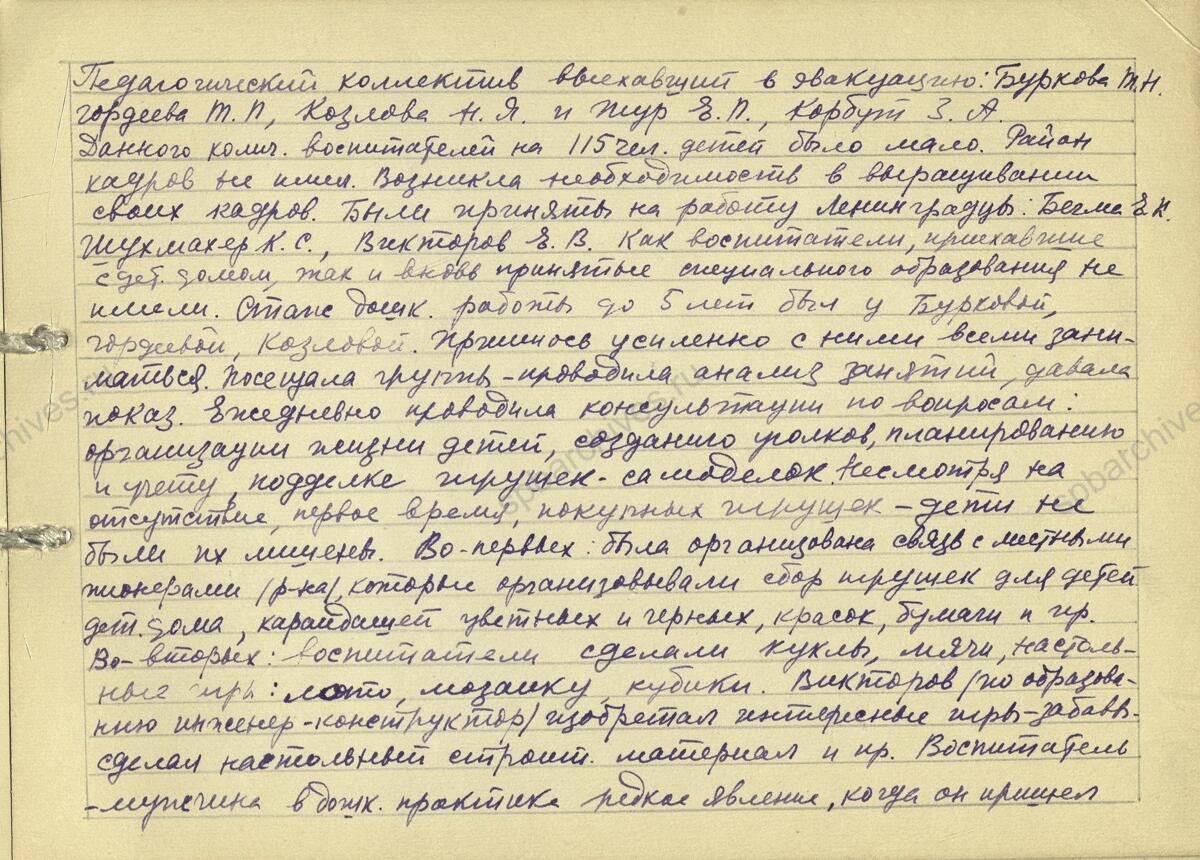 Педагогический коллектив выехавший в эвакуацию: Буркова Т.Н.
Гордеева Т.П., Козлова Н.Я. и Жур Е.П., Корбут З.А.
Данного колич. воспитателей на 115 чел. детей было мало. Район
кадров не имел. Возникла необходимость в выращивании
своих кадров. Были приняты на работу Ленинградцы: Бегма Е.К.
Шухмахер К.С., Викторов Е.В. Как воспитатели, приехавшие
с дет. домом, так и вновь принятые специального образования не
имели. Стаж дошк. работы до 5 лет был у Бурковой,
Гордеевой, Козловой. Пришлось усиленно с ними всеми зани-
маться. Посещала группы - проводила анализ занятий, давала
показ. Ежедневно проводила консультации по вопросам:
организации жизни детей, созданию уголков, планированию
и учету, подделке игрушек-самоделок. Несмотря на
отсутствие, первое время, покупных игрушек - дети не
были их лишены. Во-первых: была организована связь с местными
пионерами /р-на/, которые организовывали сбор игрушек для детей
дет. дома, карандашей цветных и черных, красок, бумаги и пр.
Во-вторых: воспитатели сделали куклы, мячи, настоль-
ные игры: лото, мозаику, кубики. Викторов /по образова-
нию инженер-конструктор/ изобретал интересные игры-забавы-
сделал настольный строит. материал и пр. Воспитатель
-мужчина в дошк. практике редкое явление, когда он пришел
spbarchives.ru
spbarchives.ru
spbarchives